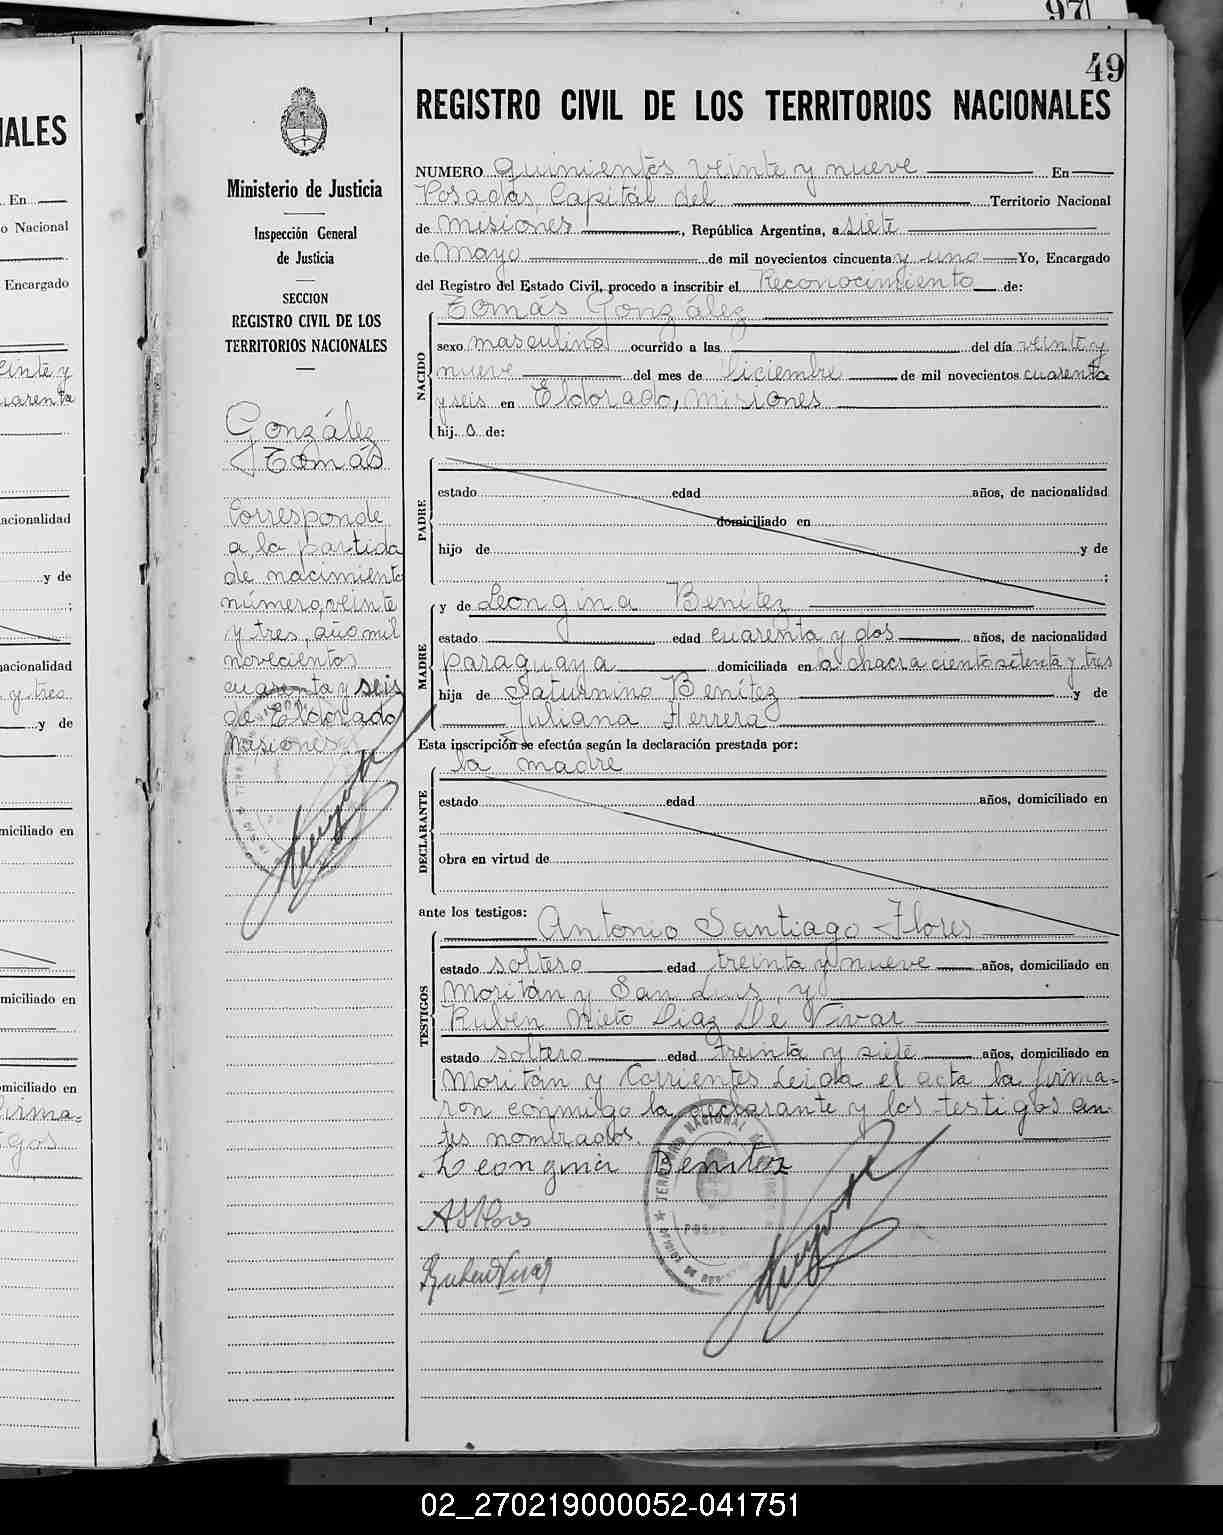 97
49
REGISTRO CIVIL DE LOS TERRITORIOS NACIONALES
NUMERO quinientos veinte y nueve En
Posadas, Capitál del Territorio Nacional
de Misiones, República Argentina, a siete
de Mayo de mil novecientos cincuenta y uno Yo, Encargado
del Registro del Estado Civil, procedo a inscribir el Reconocimiento de:
NACIDO
Tomás González
sexo masculino ocurrido a las del día veinte y
nueve del mes de Diciembre de mil novecientos cuarenta
y seis en Eldorado, Misiones
hij o de:
PADRE
estado edad años, de nacionalidad
domiciliado en
hijo de y de
;
MADRE
y de Leongina Benítez
estado edad cuarenta y dos años, de nacionalidad
paraguaya domiciliada en la chacra ciento setenta y tres
hija de Saturnino Benítez y de
Juliana Herrera
Esta inscripción se efectúa según la declaración prestada por:
DECLARANTE
la madre
estado edad años, domiciliado en
obra en virtud de
ante los testigos:
TESTIGOS
Antonio Santiago Flores
estado soltero edad treinta y nueve años, domiciliado en
Moritán y San Luis, y
Rubén Nieto Diaz De Vivar
estado soltero edad treinta y siete años, domiciliado en
Moritán y Corrientes Leida el acta la firma=
ron conmigo la declarante y los testigos an-
tes nombrados.
Leongina Benitez
ASFlores
Ministerio de Justicia
Inspección General
de Justicia
SECCION
REGISTRO CIVIL DE LOS
TERRITORIOS NACIONALES
González
Tomás
Corresponde
a la partida
de nacimiento
número, veinte
y tres, año mil
novecientos
cuarenta y seis
de Eldorado
Misiones
NALES
En
o Nacional
Encargado
einte y
uarenta
acionalidad
y de
;
nacionalidad
y tres
y de
miciliado en
miciliado en
omiciliado en
firma=
gos
02_270219000052-041751